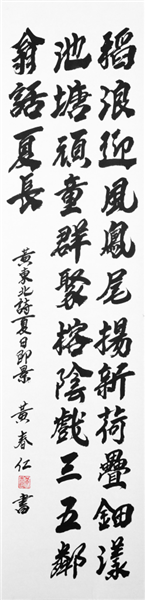 稻浪迎風鳳尾揚新荷疊鈿漾
池塘頑童群聚榕陰戲三五鄰
翁話夏長
黃東北詩夏日即景 黃春仁 書